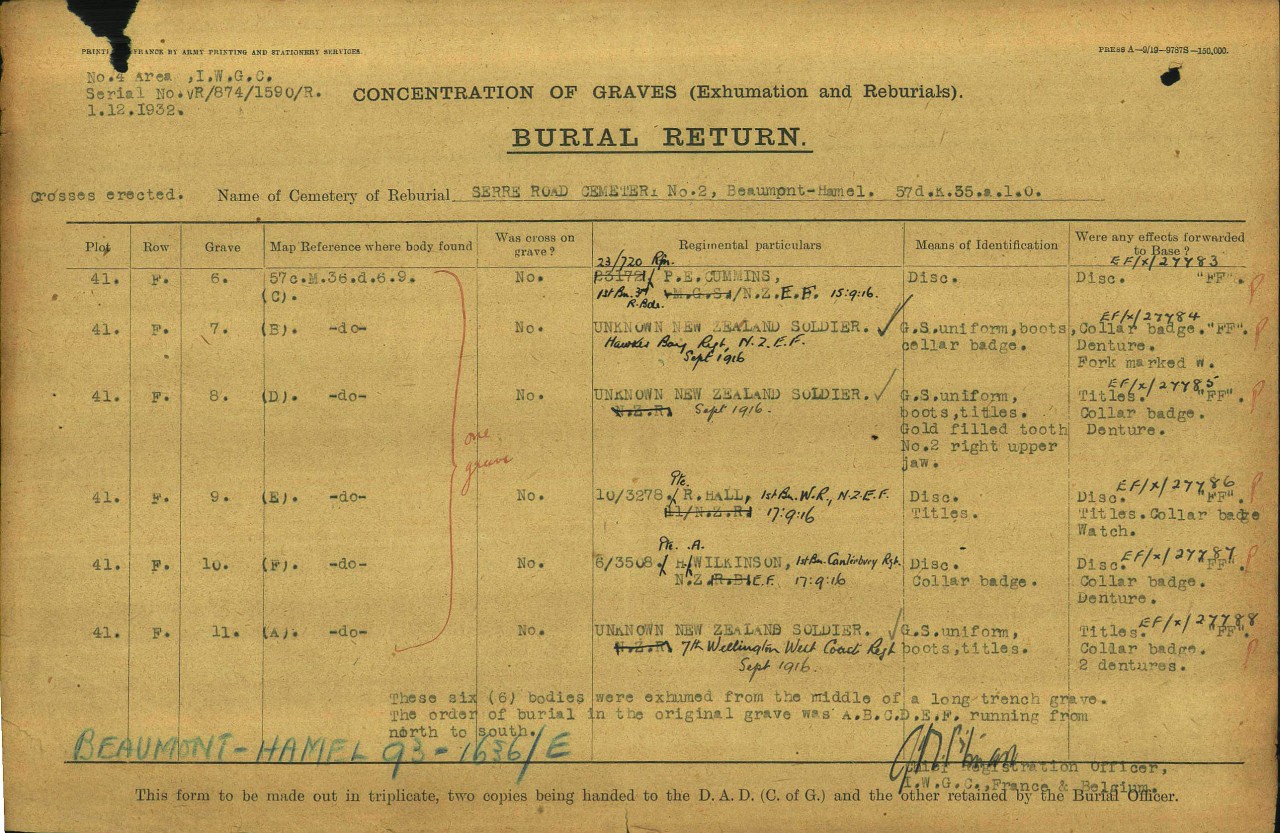 PRINTED FRANCE BY ARMY PRINTING AND STATIONERY SERVICES.
PRESS A—9/19—9787S—150,000.
No.4 Area ,I.W.G.C.
Serial No.VR/874/1590/R.
1.12.1932.
CONCENTRATION OF GRAVES (Exhumation and Reburials).
BURIAL RETURN.
Crosses erected. Name of Cemetery of Reburial SERRE ROAD CEMETERY No.2, Beaumont-Hamel. 57d.K.35.a.1.0.
Plot Row Grave Map Reference where body found Was cross on grave? Regimental particulars Means of Identification Were any effects forwarded to Base?
23/720 Rfn. EF/x/27783
41. F. 6. 57c.M.36.d.6.9. No. P.E.CUMMINS, Disc. Disc. "FF".
(C). 1st Bn. 3rd R. Bde. M.G.S./N.Z.E.F. 15:9:16.
EF/x/27784
41. F. 7. (B). -do- No. UNKNOWN NEW ZEALAND SOLDIER. G.S.uniform,boots, Collar badge."FF".
Hawkes Bay Regt, N.Z.E.F. collar badge. Denture.
Sept 1916 Fork marked W.
EF/x/27785
41. F. 8. (D). -do- No. UNKNOWN NEW ZEALAND SOLDIER. G.S.uniform, Titles. "FF".
N.Z.R. Sept 1916. boots,titles. Collar badge.
Gold filled tooth Denture.
No.2 right upper
jaw.
one
grave
Pte. EF/x/27786
41. F. 9. (E). -do- No. 10/3278. R.HALL, 1st Bn. W.R., N.Z.E.F. Disc. Disc. "FF".
11/N.Z.R. 17:9:16 Titles. Titles.Collar badge
Watch.
Pte. A. EF/x/27787
41. F. 10. (F). -do- No. 6/3508. H.WILKINSON, 1st Bn. Canterbury Rgt. Disc. Disc. "FF".
N.Z.R.B. E.F. 17:9:16 Collar badge. Collar badge.
Denture.
EF/x/27788
41. F. 11. (A). -do- No. UNKNOWN NEW ZEALAND SOLDIER. G.S.uniform, Titles. "FF".
N.Z.R. 7th Wellington West Coast Regt boots,titles. Collar badge.
Sept 1916. 2 dentures.
These six (6) bodies were exhumed from the middle of a long trench grave.
The order of burial in the original grave was A.B.C.D.E.F. running from
north to south.
BEAUMONT-HAMEL 93-1636/E
Chief Registration Officer,
I.W.G.C.,France & Belgium.
This form to be made out in triplicate, two copies being handed to the D. A. D. (C. of G.) and the other retained by the Burial Officer.